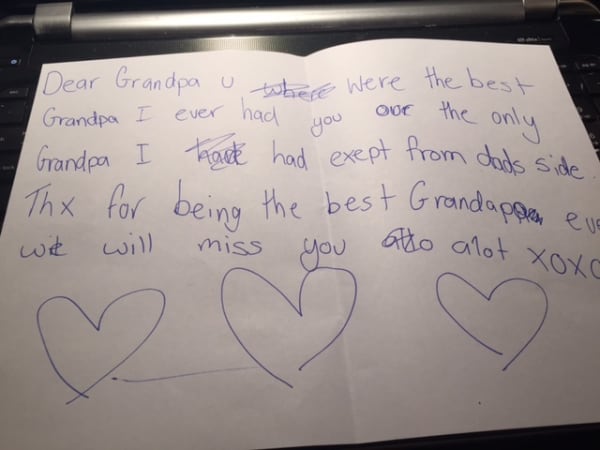 Dear Grandpa u were the best
Grandpa I ever had you our the only
Grandpa I had exept from dads side.
Thx for being the best Grandappa eve
we will miss you alot xoxo